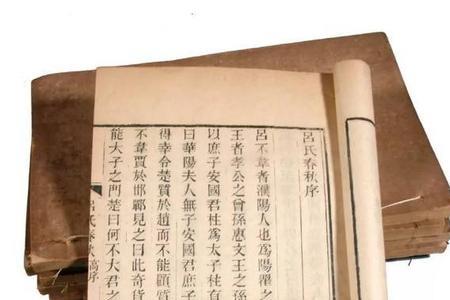 呂氏春秋序
呂不韋者濮陽人也爲陽翟
王者孝公之曾孫惠文王之孫
以庶子安國君柱爲太子柱有
曰華陽夫人無子安國君庶子
得幸令楚質於趙而不能顧質
不韋賈於邯鄲見之曰此奇貨
能大子之門楚曰何不大君之
呂氏春秋高序